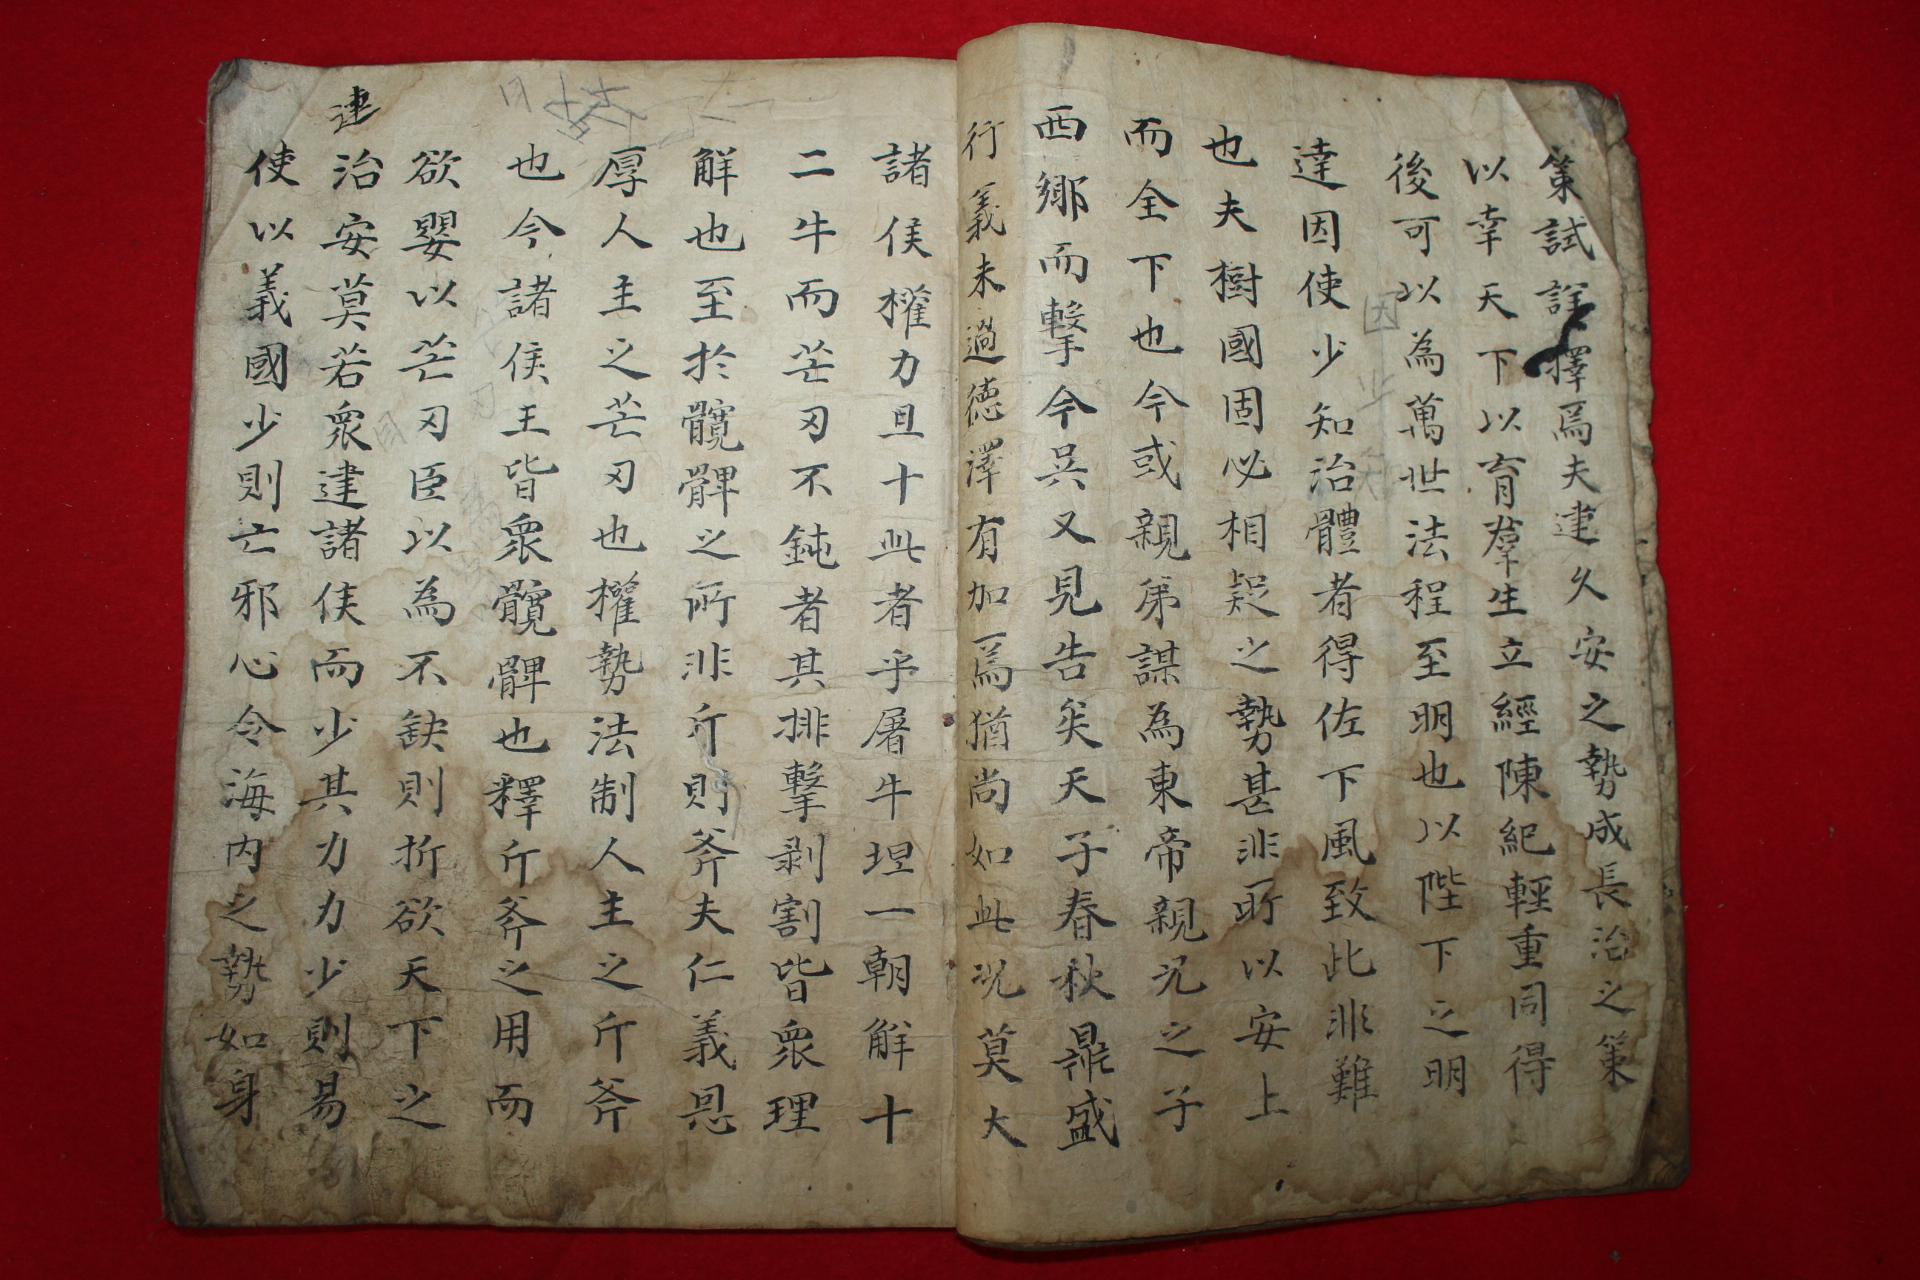 策試詳擇焉夫建久安之勢成長治之策
以幸天下以育羣生立經陳紀輕重同得
後可以為萬世法程至明也以陛下之明
達因使少知治體者得佐下風致此非難
也夫樹國固必相疑之勢甚非所以安上
而全下也今或親弟謀為東帝親兄之子
西鄉而擊今吳又見告矣天子春秋鼎盛
行義未過德澤有加焉猶尚如此況莫大
諸侯權力且十此者乎屠牛坦一朝解十
二牛而芒刃不鈍者其排擊剥割皆衆理
解也至於髖髀之所非斤則斧夫仁義恩
厚人主之芒刃也權勢法制人主之斤斧
也今諸侯王皆衆髖髀也釋斤斧之用而
欲嬰以芒刃臣以為不缺則折欲天下之
治安莫若衆建諸侯而少其力力少則易
使以義國少則亡邪心令海内之勢如身
連